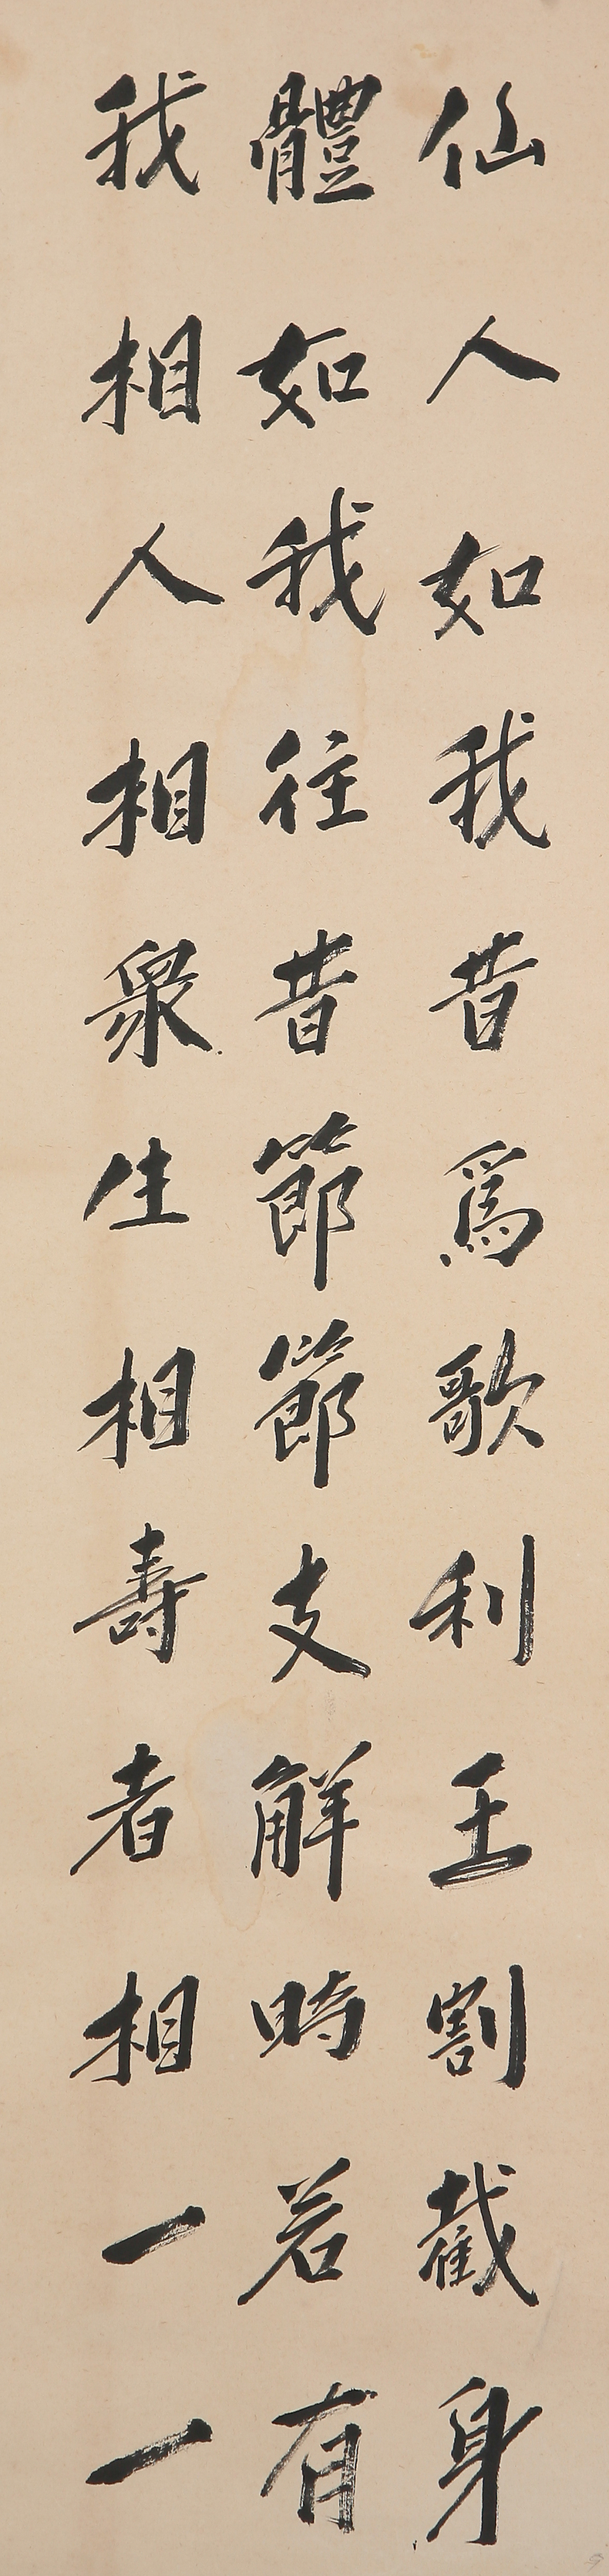 仙人如我昔爲歌利王割截身
體如我往昔節節支解時若有
我相人相衆生相壽者相一一